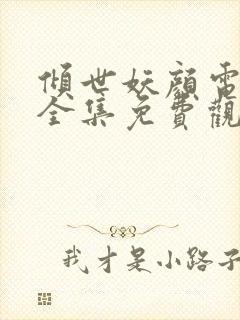 傾世妖顏電
全集免費觀
我才是小路子